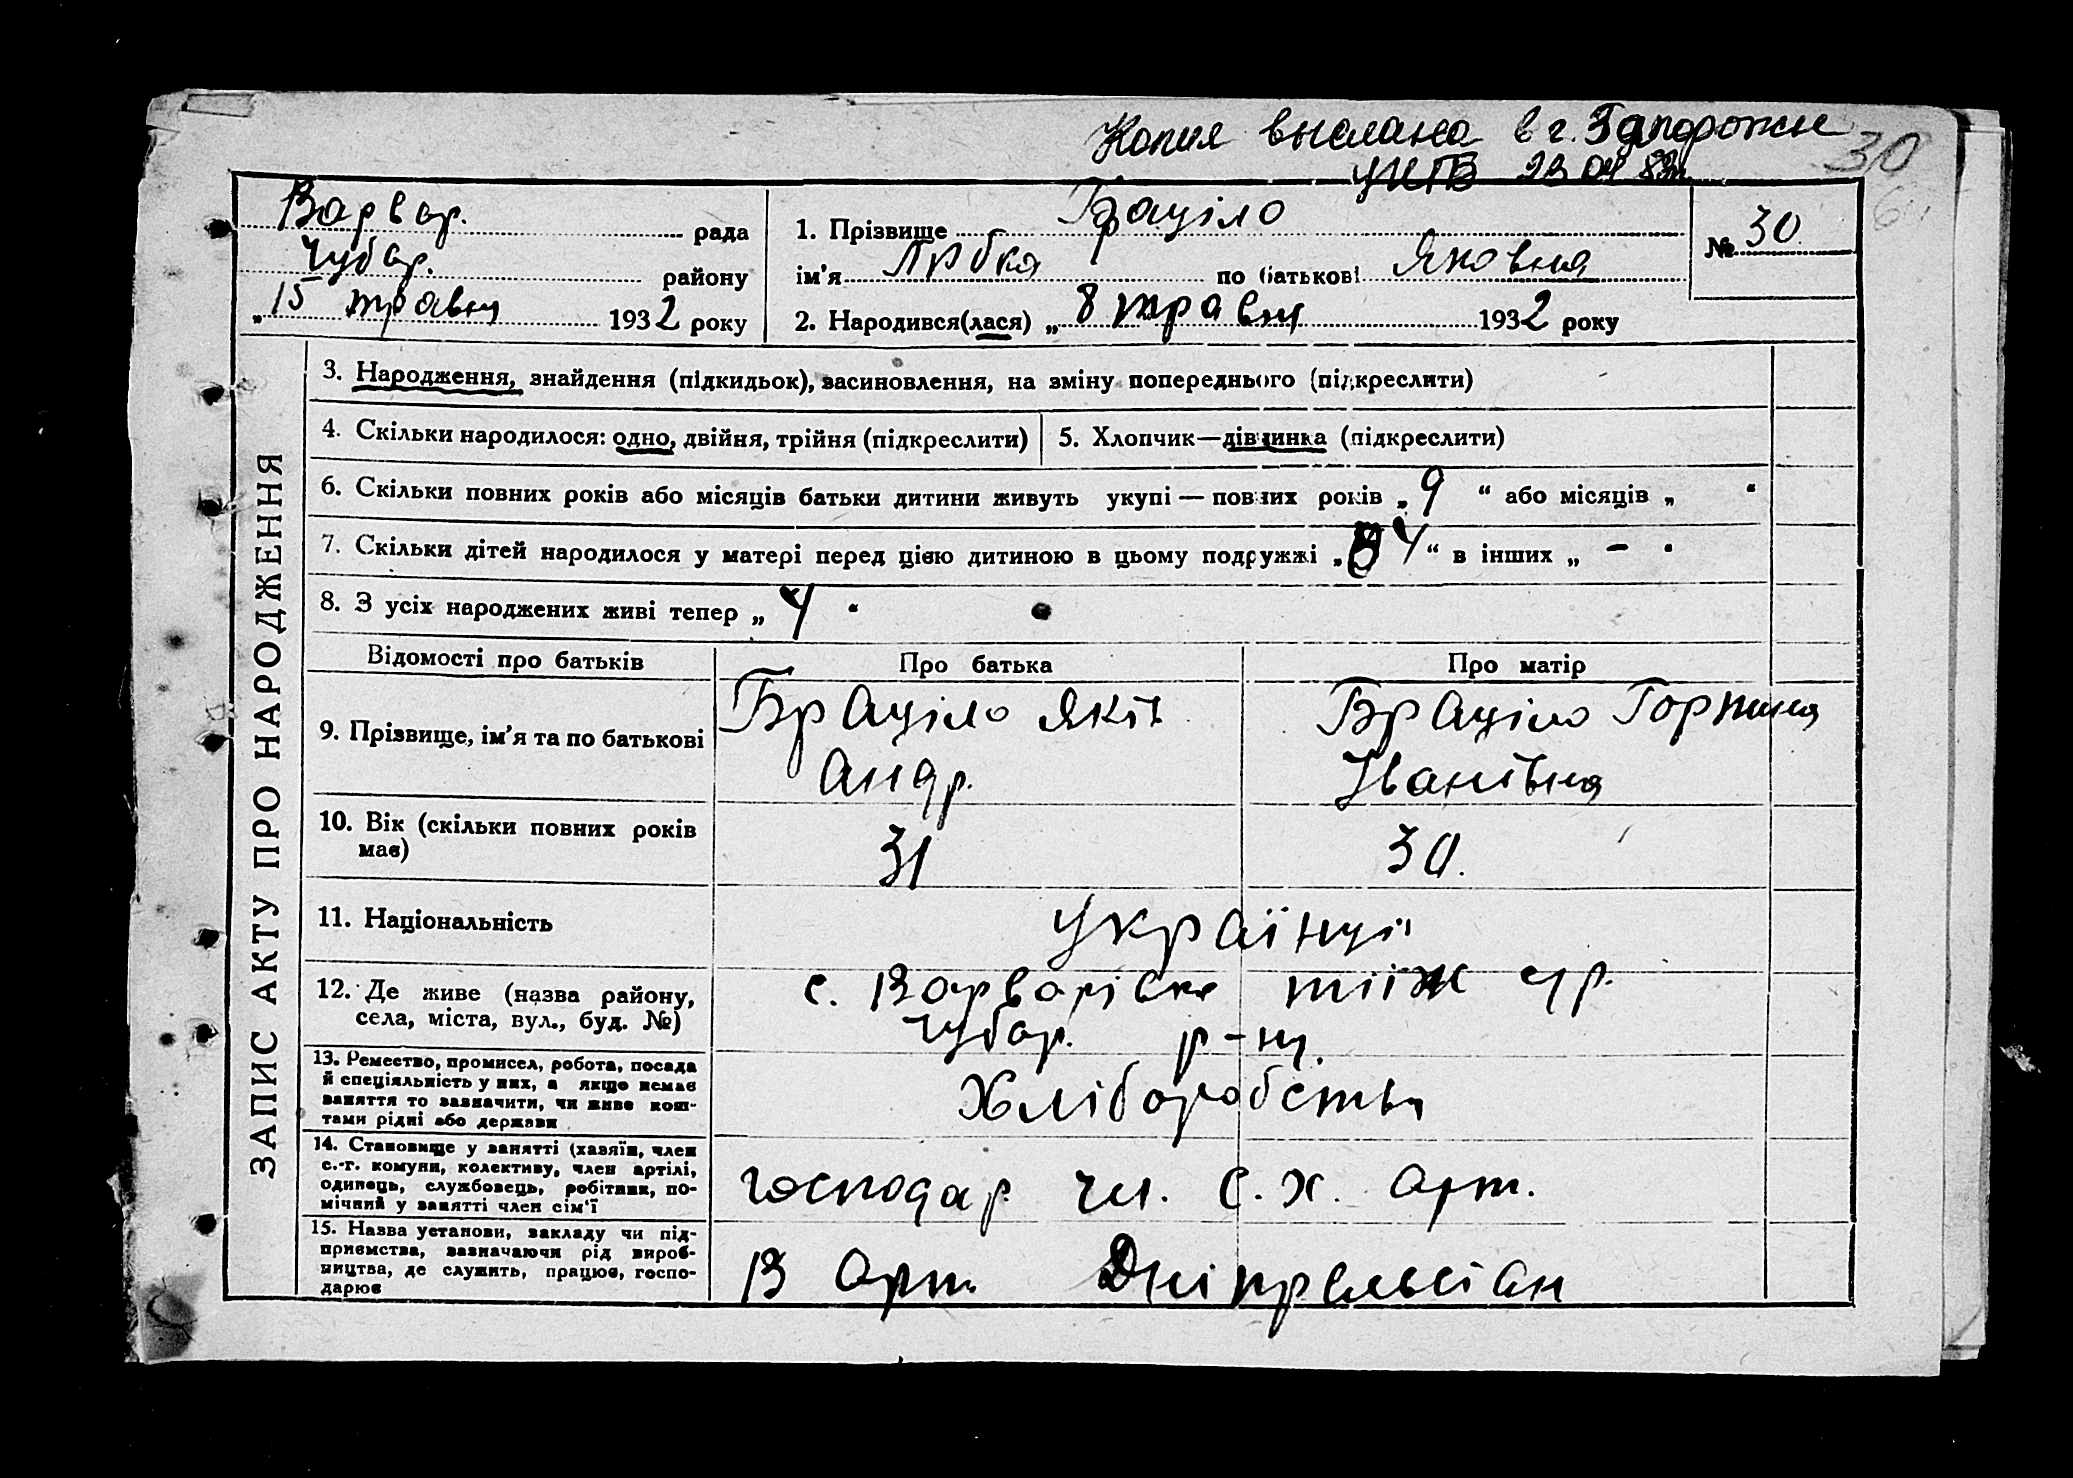 Копия выслана в г. Запорожье
23 04 83
30
Варвар. рада
Чубар. району
„15 травня 1932 року
1. Прізвище Браціло
ім'я Любка по батькові Яковна
2. Народився(лася) „8 травня 1932 року
№ 30
ЗАПИС АКТУ ПРО НАРОДЖЕННЯ
3. Народження, знайдення (підкидьок), засиновлення, на зміну попереднього (підкреслити)
4. Скільки народилося: одно, двійня, трійня (підкреслити)
5. Хлопчик—дівчинка (підкреслити)
6. Скільки повних років або місяців батьки дитини живуть укупі — повних років „9 “ або місяців „ “
7. Скільки дітей народилося у матері перед цією дитиною в цьому подружжі „4“ в інших „ – “
8. З усіх народжених живі тепер „4 “
Відомості про батьків
Про батька
Про матір
9. Прізвище, ім'я та по батькові
Браціло Яків
Андр.
Браціло Горпина
Іванівна
10. Вік (скільки повних років
має)
31
30.
11. Національність
Українці
12. Де живе (назва району,
села, міста, вул., буд. №)
с. Варварівка тіїж с/р.
Чубар. р-ну.
13. Ремество, промисел, робота, посада
й спеціяльність у них, а якщо немає
заняття то зазначити, чи живе кош-
тами рідні або держави
Хліборобства
14. Становище у занятті (хазяїн, член
с.-г. комуни, колективу, член артілі,
одинець, службовець, робітник, по-
мічний у занятті член сім'ї
господар чл. с. х. арт.
15. Назва установи, закладу чи під-
приємства, зазначаючи рід вироб-
ництва, де служить, працює, госпо-
дарює
В арт. Дніпрельстан